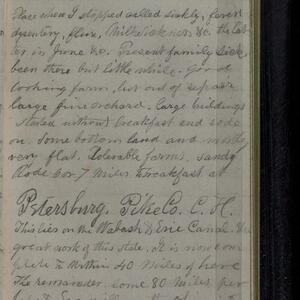 Place where I stopped called sickly, fever
dysentery, flux, Milk sickness &c. the lat-
ter in June &c. Present family sick,
been there but little while. Good
looking farm, but out of repair
large fine orchard. large buildings
Started without breakfast and rode
on. Some bottom land and mostly
very flat. Tolerable farms. sandy
Rode 6 or 7 miles to breakfast at
Petersburg. Pike Co. C. H.
This lies on the Wabash & Erie Canal. the
great work of this State. It is now com
plete to within 40 miles of here
The remainder, some 80 miles